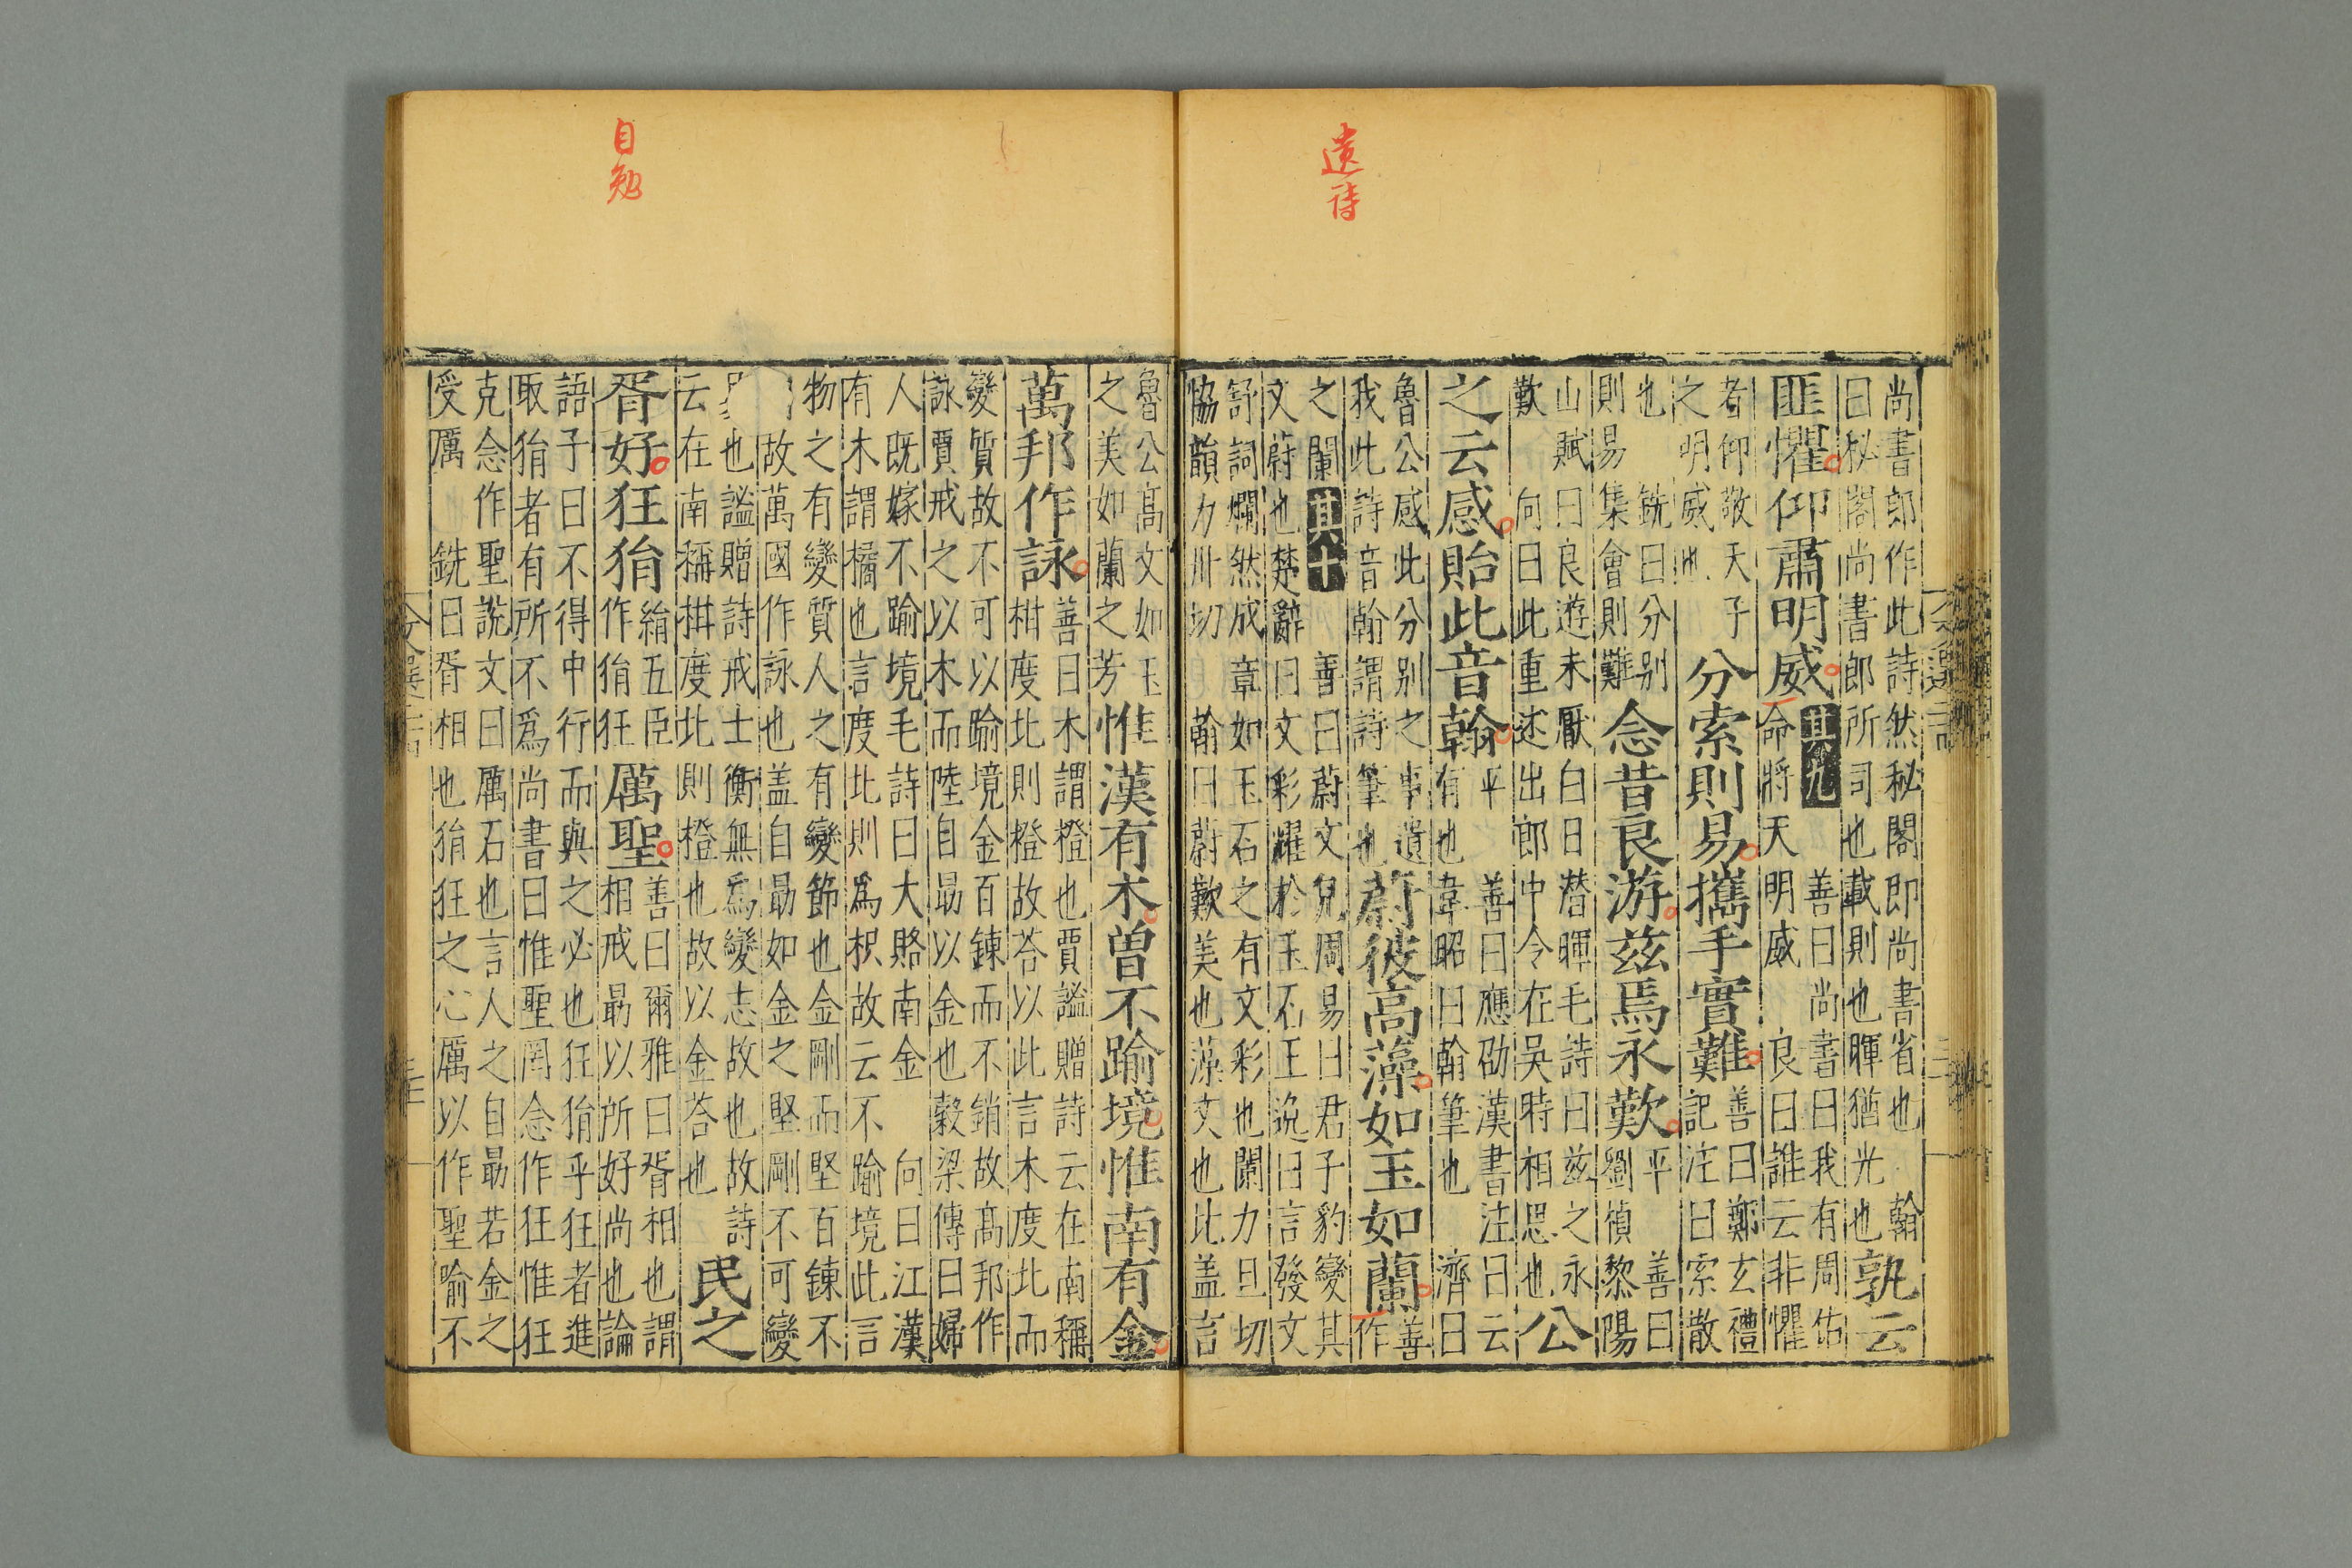 遺詩
尚書郎作此詩然秘閣即尚書省也 翰
曰秘閣尚書郎所司也載則也暉猶光也
孰云
匪懼仰肅明威
其九 善曰尚書曰我有周佑
命將天明威 良曰誰云非懼
者仰敬天子
之明威也
分索則易攜手實難
善曰鄭玄禮
記注曰索散
也 銑曰分別
則易集會則難
念昔良游茲焉永歎
平 善曰
劉楨黎陽
山賦曰良遊未厭白日潛暉毛詩曰茲之永
歎 向曰此重述出郎中令在吳時相思也
公
之云感貽此音翰
平 善曰應劭漢書注曰云
有也韋昭曰翰筆也 濟曰
魯公感此分別之事遺
我此詩音翰謂詩筆也
蔚彼高藻如玉如蘭
善
作
之闌 其十 善曰蔚文皃周易曰君子豹變其
文蔚也楚辭曰文彩耀於玉石王逸曰言發文
舒詞爛然成章如玉石之有文彩也闌力旦切
協韻力丗切 翰曰蔚歎美也藻文也比盖言
自勉
魯公高文如玉
之美如蘭之芳
惟漢有木曾不踰境惟南有金
萬邦作詠
善曰木謂橙也賈謐贈詩云在南稱
柑度北則橙故荅以此言木度北而
變質故不可以踰境金百鍊而不銷故萬邦作
詠賈戒之以木而陸自勗以金也穀梁傳曰婦
人既嫁不踰境毛詩曰大賂南金 向曰江漢
有木謂橘也言度北則為枳故云不踰境此言
物之有變質人之有變節也金剛而堅百鍊不
故萬國作詠也盖自勗如金之堅剛不可變
也謐贈詩戒士衡無為變志故也故 詩
云在南稱柑度北則橙也故以金荅也
民之
胥好狂狷
絹五臣
作狷狂
厲聖
善曰爾雅曰胥相也謂
相戒勗以所好尚也論
語子曰不得中行而與之必也狂狷乎狂者進
取狷者有所不為尚書曰惟聖罔念作狂惟狂
克念作聖說文曰厲石也言人之自勗若金之
受厲 銑曰胥相也狷狂之心厲以作聖喻不